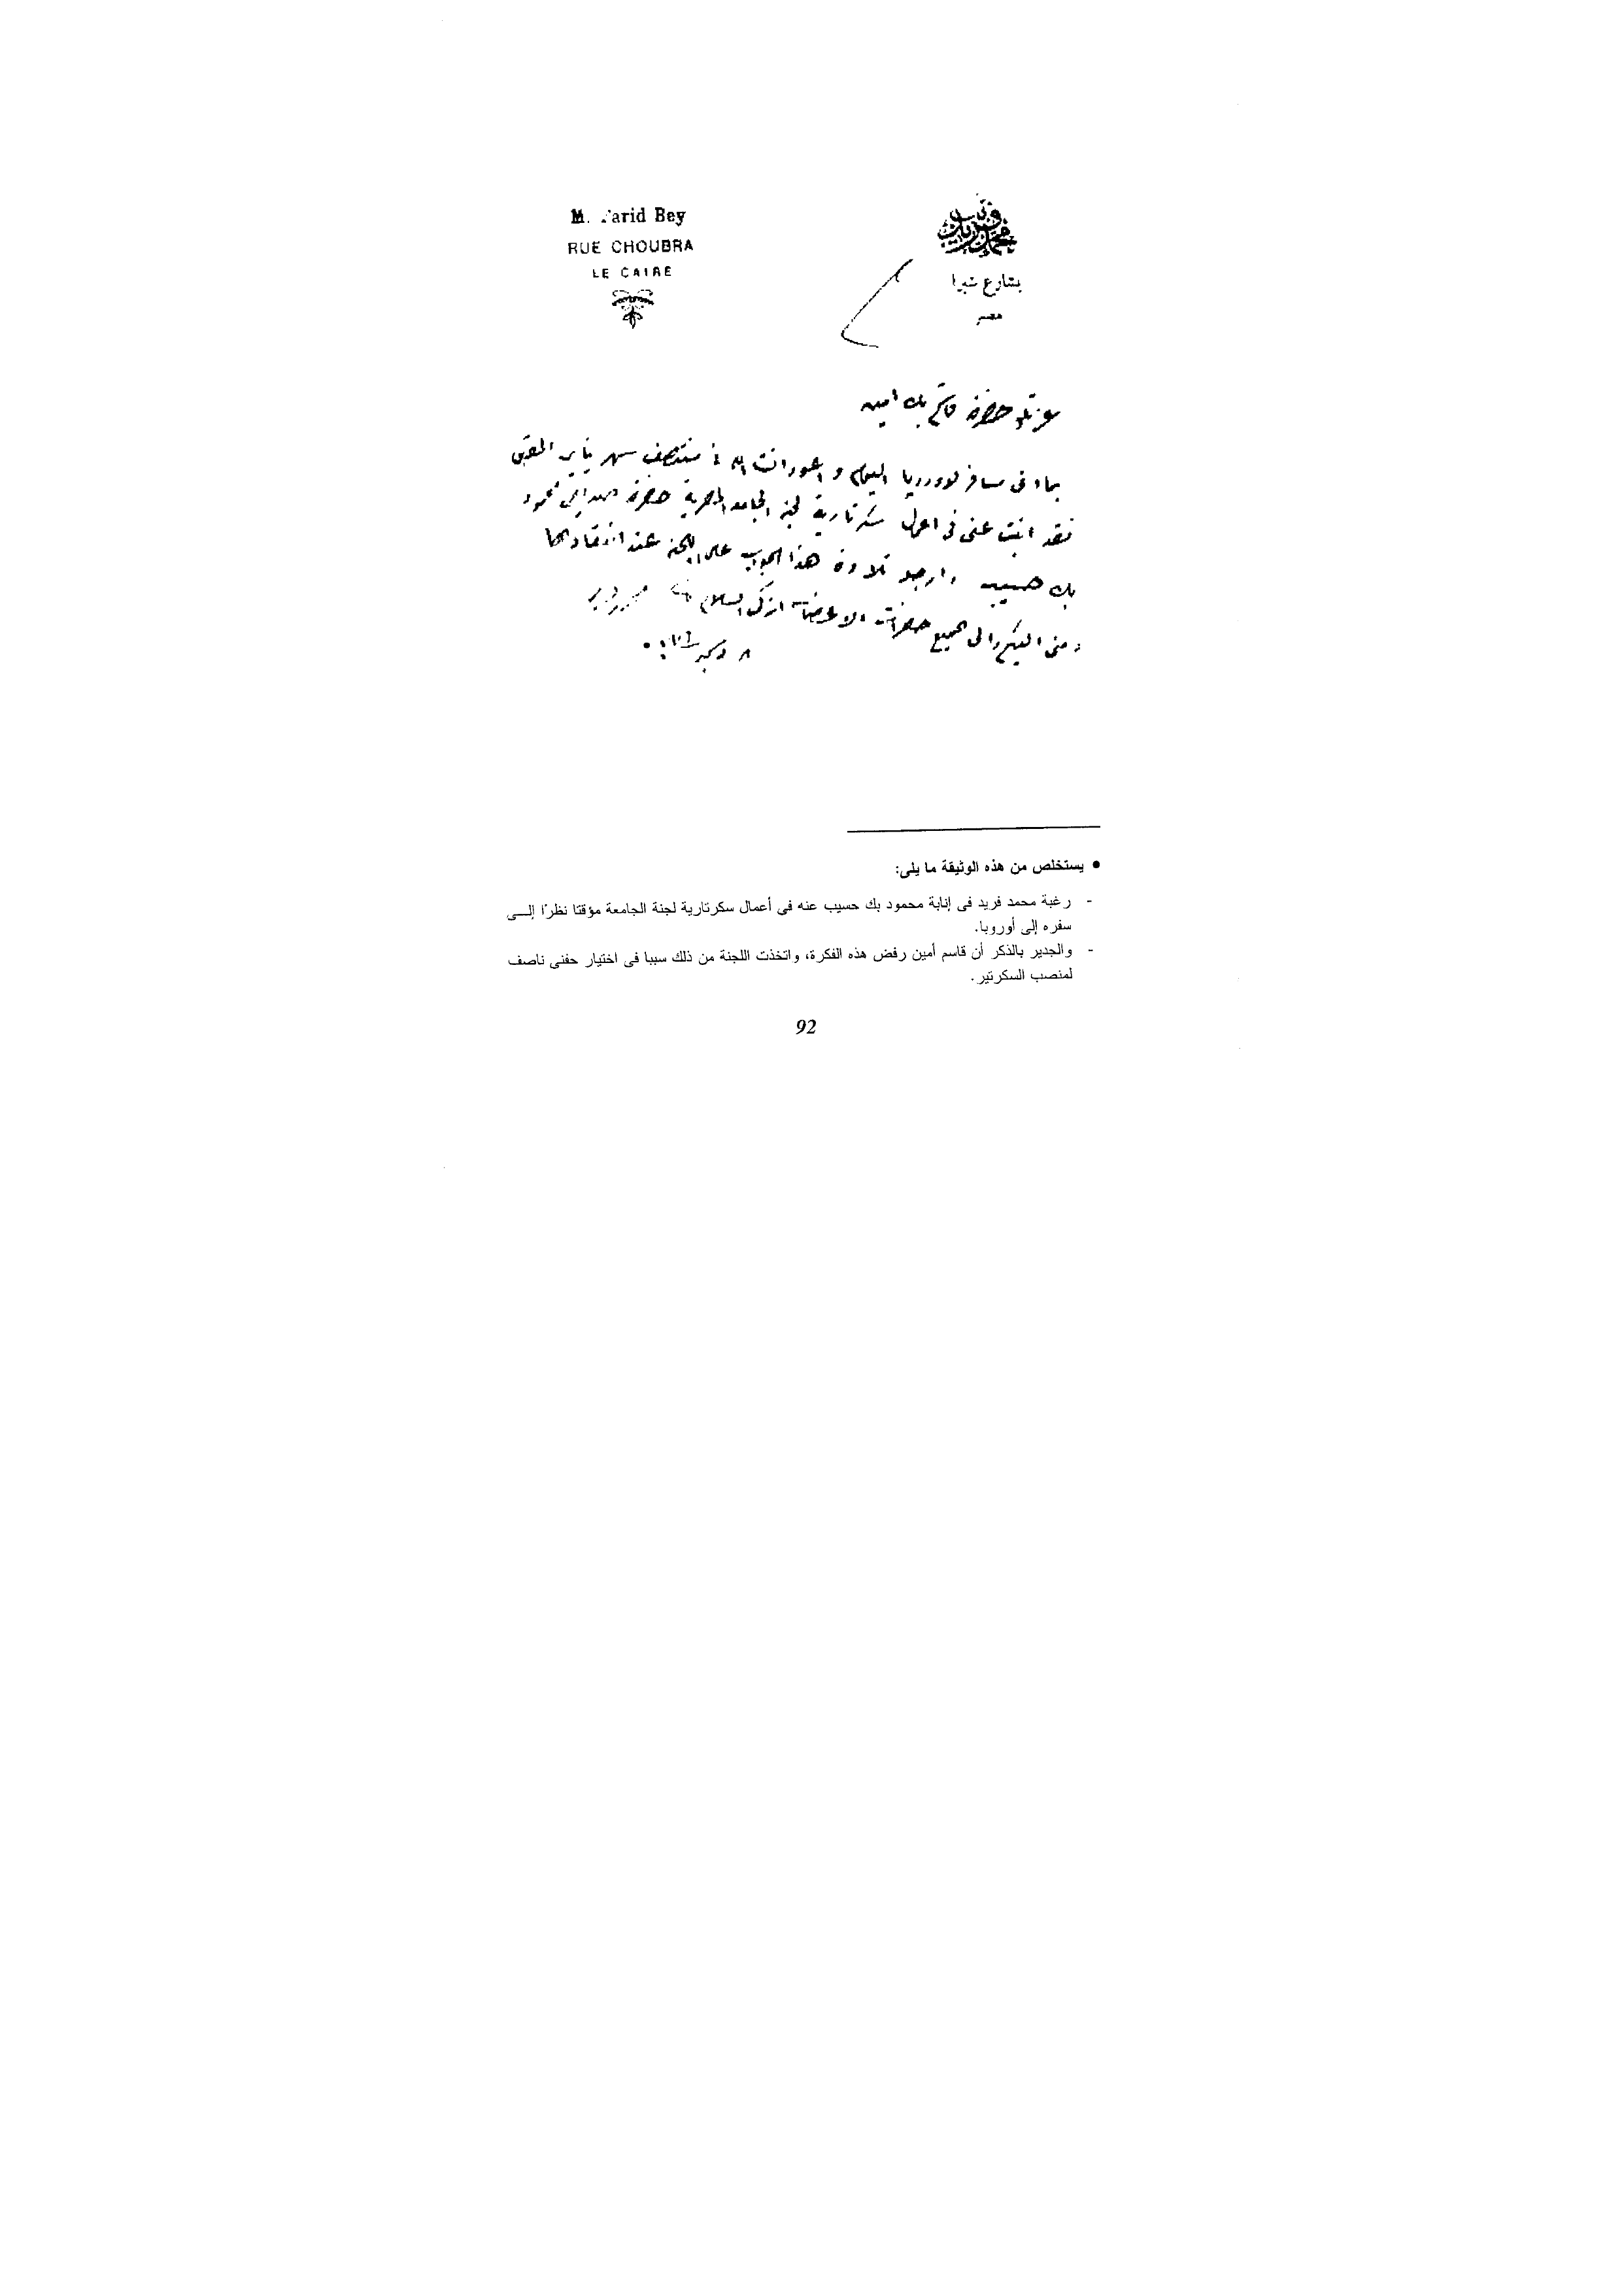 M. Farid Bey
RUE CHOUBRA
LE CAIRE
محمد فريد بك
بشارع شبرا
مصر
عزتلو حضرة قاسم بك امين
بما انى مسافر لاوروبا اليوم و اعود انشاء الله فى منتصف شهر يناير المقبل
فقد انبت عنى فى اعمال سكرتارية لجنة الجامعة المصرية حضرة محمود
بك حسيب وارجو تلاوة هذا الجواب على اللجنة عند انعقادها
ومنى اليكم والى جميع حضرات الاعضاء ازكى السلام محمد فريد
٨ دسمبر
• يستخلص من هذه الوثيقة ما يلى:
- رغبة محمد فريد فى إنابة محمود بك حسيب عنه فى أعمال سكرتارية لجنة الجامعة مؤقتا نظرًا إلــى
سفره إلى أوروبا.
- والجدير بالذكر أن قاسم أمين رفض هذه الفكرة، واتخذت اللجنة من ذلك سببا فى اختيار حفنى ناصف
لمنصب السكرتير.
92